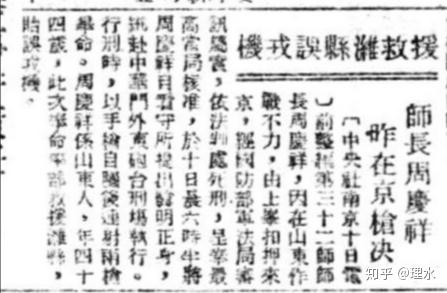 援救濰縣誤戎機
師長周慶祥
昨在京槍决
〔中央社南京十日電
〕前整編第三十二師師
長周慶祥，因在山東作
戰不力，由上峯扣押來
京，經國防部軍法局審
訊屬實，依法判處死刑，呈奉最
高當局核准，於十日晨六時半將
周慶祥自看守所提出驗明正身，
押赴中華門外東砲台刑塲執行。
行刑時，以手槍自腦後連射兩槍
畢命。周慶祥係山東人，年四十
四歲，此次奉命率部救援濰縣，
貽誤戎機。
知乎 @理水